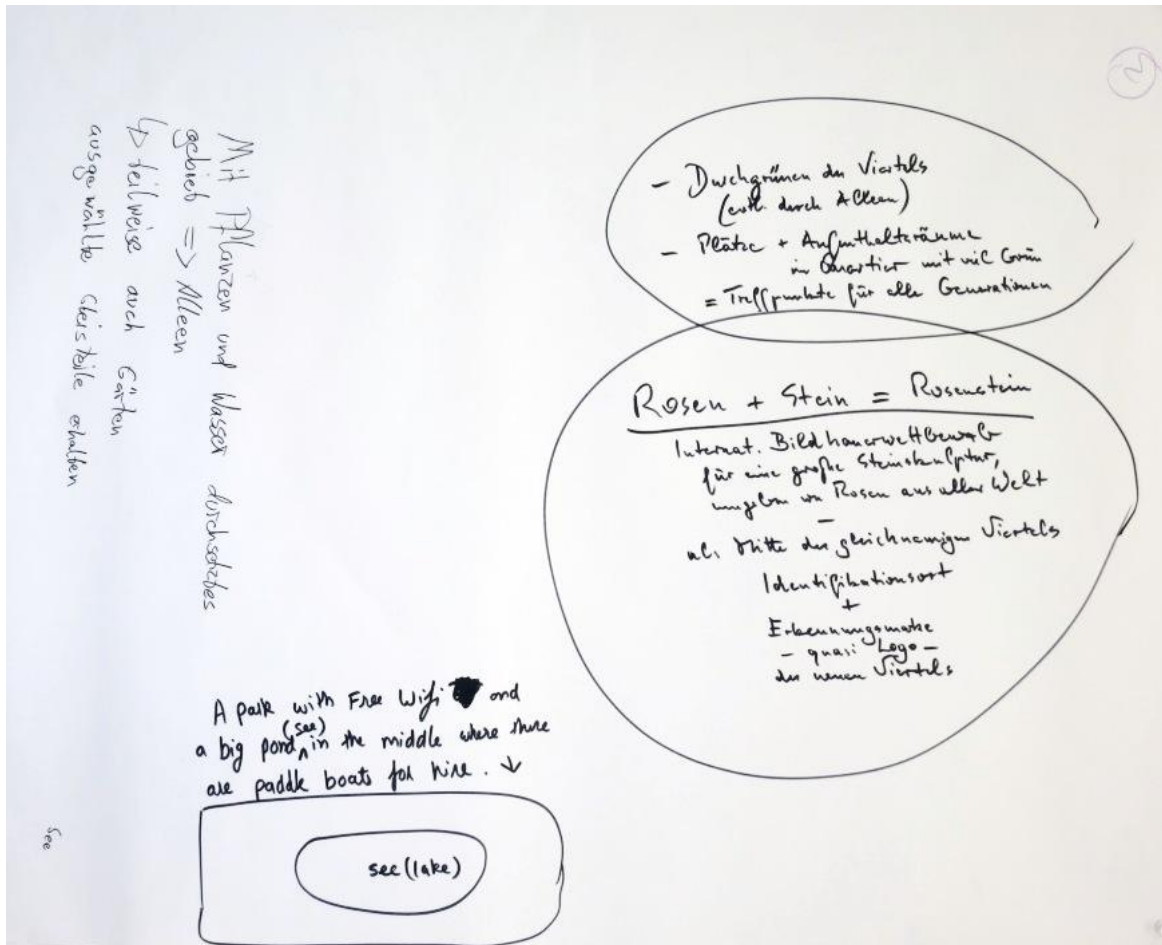 Mit Pflanzen und Wasser durchsetztes
gebiet => Alleen
↳ teilweise auch Gärten
ausgewählte Gleisteile erhalten
- Durchgrünen des Viertels
(evtl. durch Alleen)
- Plätze + Aufenthaltsräume
im Quartier mit viel Grün
= Treffpunkte für alle Generationen
Rosen + Stein = Rosenstein
Internat. Bildhauerwettbewerb
für eine große Steinskulptur,
umgeben von Rosen aus aller Welt
–
als Mitte des gleichnamigen Viertels
Identifikationsort
+
Erkennungsmarke
- quasi Logo -
des neuen Viertels
A park with Free Wifi and
a big pond (see) in the middle where there
are paddle boats for hire. ↓
see (lake)
See